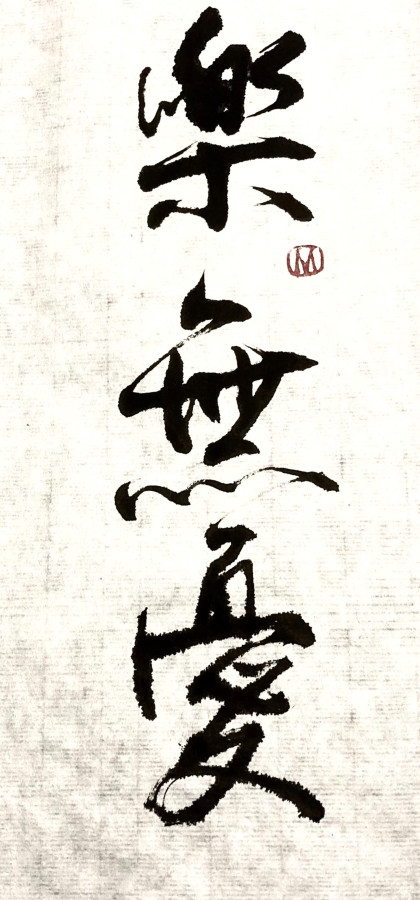 樂無憂
M